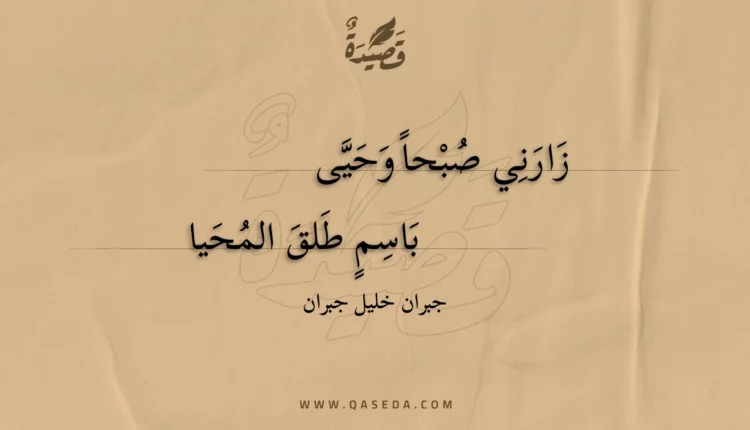 قَصِيدَةٌ
زَارَنِي صُبْحاً وَحَيَّى
بَاسِمٍ طَلقَ المُحَيا
جبران خليل جبران
WWW.QASEDA.COM